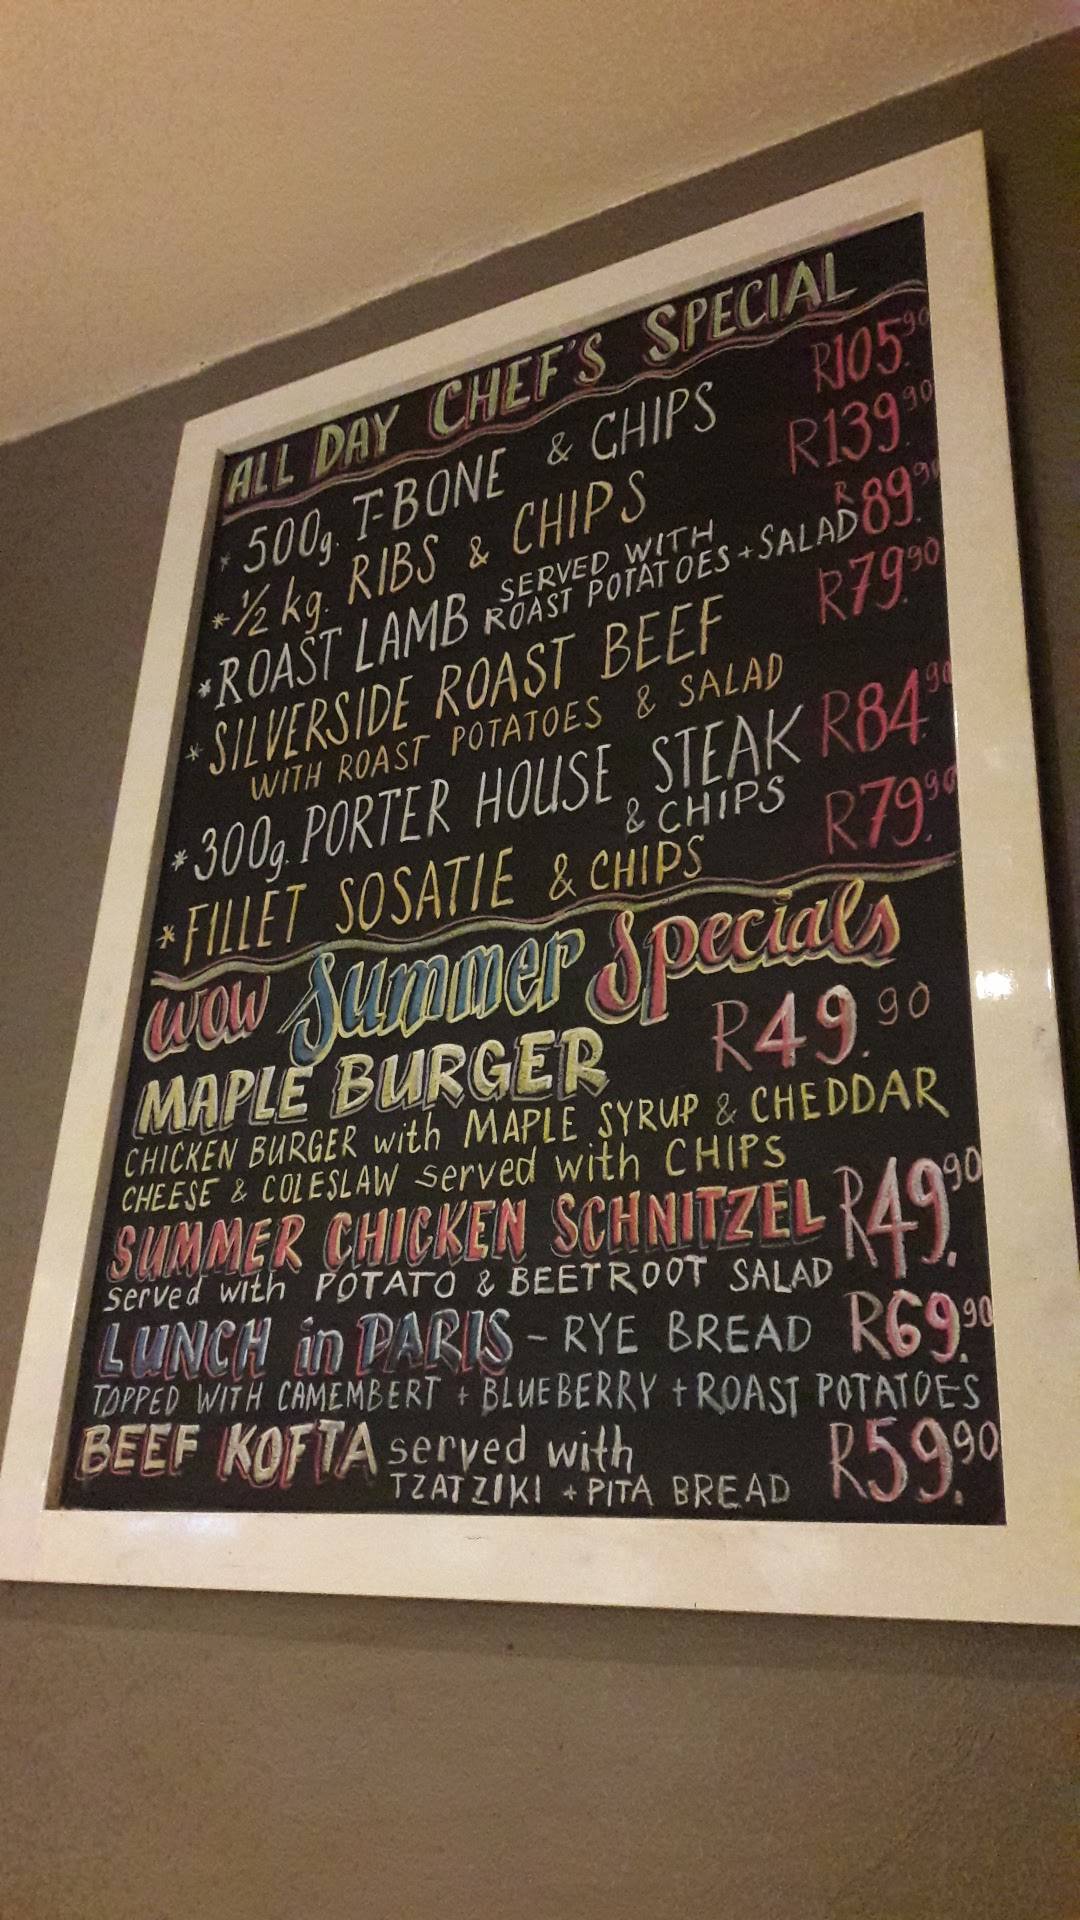 ALL DAY CHEF'S SPECIAL
* 500g. T-BONE & CHIPS R105.90
* ½ kg. RIBS & CHIPS R139.90
* ROAST LAMB SERVED WITH ROAST POTATOES + SALAD R89.90
* SILVERSIDE ROAST BEEF R79.90
WITH ROAST POTATOES & SALAD
* 300g. PORTER HOUSE STEAK R84.90
& CHIPS
* FILLET SOSATIE & CHIPS R79.90
WOW Summer Specials
MAPLE BURGER R49.90
CHICKEN BURGER with MAPLE SYRUP & CHEDDAR
CHEESE & COLESLAW served with CHIPS
SUMMER CHICKEN SCHNITZEL R49.90
served with POTATO & BEETROOT SALAD
LUNCH in PARIS - RYE BREAD R69.90
TOPPED WITH CAMEMBERT + BLUEBERRY + ROAST POTATOES
BEEF KOFTA served with R59.90
TZATZIKI + PITA BREAD